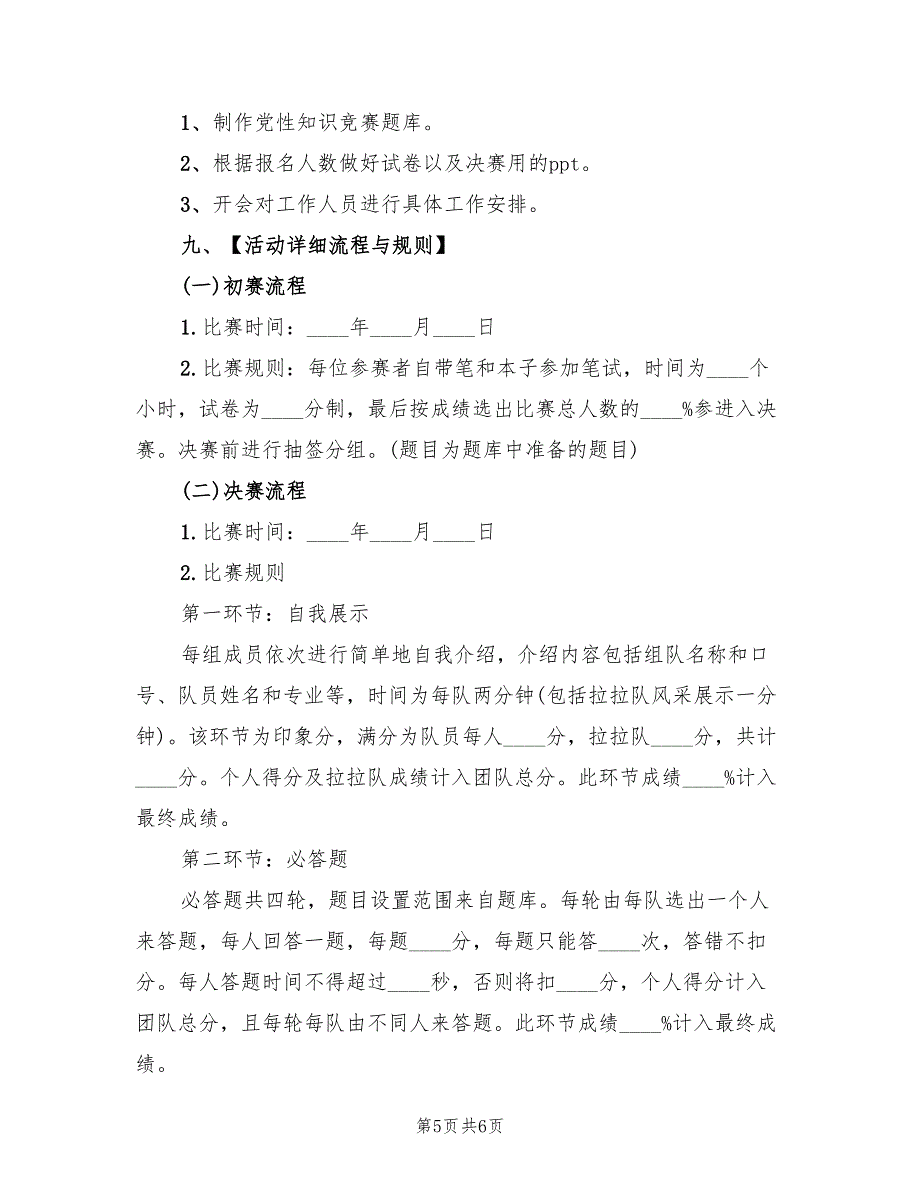 1、制作党性知识竞赛题库。
2、根据报名人数做好试卷以及决赛用的ppt。
3、开会对工作人员进行具体工作安排。
九、【活动详细流程与规则】
(一)初赛流程
1.比赛时间：____年____月____日
2.比赛规则：每位参赛者自带笔和本子参加笔试，时间为____个
小时，试卷为____分制，最后按成绩选出比赛总人数的____%参进入决
赛。决赛前进行抽签分组。(题目为题库中准备的题目)
(二)决赛流程
1.比赛时间：____年____月____日
2.比赛规则
第一环节：自我展示
每组成员依次进行简单地自我介绍，介绍内容包括组队名称和口
号、队员姓名和专业等，时间为每队两分钟(包括拉拉队风采展示一分
钟)。该环节为印象分，满分为队员每人____分，拉拉队____分，共计
____分。个人得分及拉拉队成绩计入团队总分。此环节成绩____%计入
最终成绩。
第二环节：必答题
必答题共四轮，题目设置范围来自题库。每轮由每队选出一个人
来答题，每人回答一题，每题____分，每题只能答____次，答错不扣
分。每人答题时间不得超过____秒，否则将扣____分，个人得分计入
团队总分，且每轮每队由不同人来答题。此环节成绩____%计入最终成
绩。
第5页 共6页